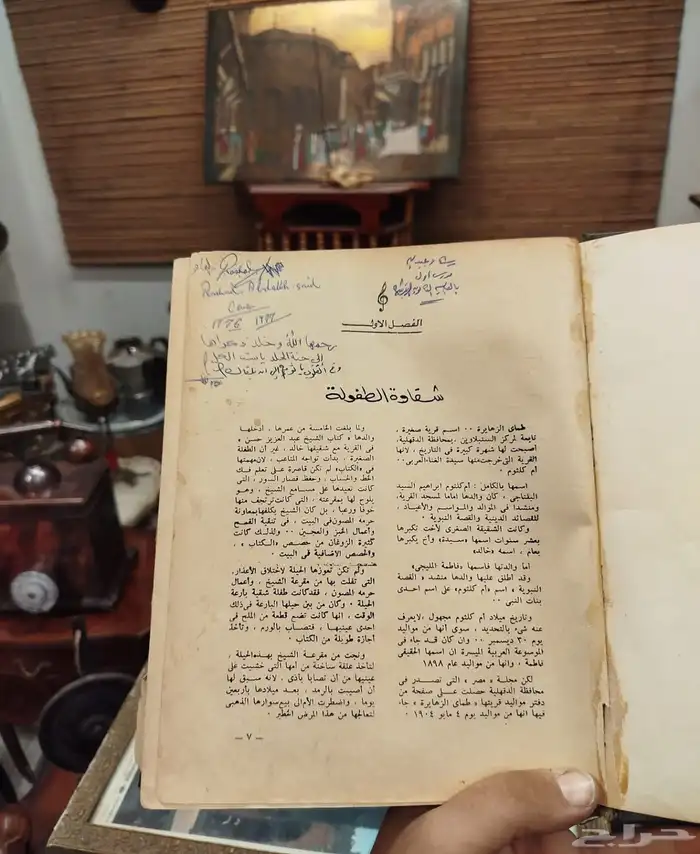 Rashad Abdallh said
الفصل الاول
شقاوة الطفولة
طماى الزهايرة ٠٠ اسم قرية صغيرة ،
تابعة لمركز السنبلاوين ، بمحافظة الدقهلية،
أصبحت لها شهرة كبيرة فى التاريخ ، لانها
القرية التى خرجت منها سيدة الغناء العربى ٠٠
ام كلثوم ٠
اسمها بالكامل : ام كلثوم ابراهيم السيد
البلتاجى ، كان والدها اماما لمسجد القرية،
ومنشدا فى الموالد والمواسم والاعياد ،
للقصائد الدينية والقصة النبوية ٠
وكانت الشقيقة الصغرى لأخت تكبرها
بعشر سنوات اسمها «سيدة» وأخ يكبرها
بعام ، اسمه «خالد»
اما والدتها فاسمها «فاطمة المليجى»
وقد أطلق عليها والدها منشد « القصة
النبوية » اسم «أم كلثوم» على اسم احدى
بنات النبى ٠٠
وتاريخ ميلاد أم كلثوم مجهول ،لايعرف
عنه شىء بالتحديد ، سوى انها من مواليد
يوم ٣٠ ديسمبر ٠٠ وان كان قد جاء فى
الموسوعة العربية الميسرة ان اسمها الحقيقى
فاطمة ، وانها من مواليد عام ١٨٩٨
لكن مجلة « مصر » التى تصدر فى
محافظة الدقهلية حصلت على صفحة من
دفتر مواليد قريتها « طماى الزهايرة » جاء
فيها انها من مواليد يوم ٤ مايو ١٩٠٤ ٠
ولما بلغت الخامسة من عمرها ، ادخلها
والدها « كتاب الشيخ عبد العزيز حسن »
فى القرية مع شقيقها خالد، غير أن الطفلة
الصغيرة ، بدأت تواجه المتاعب ، لان مهمتها
فى «الكتاب» لم تكن قاصرة على تعلم فك
الخط والحساب ، وحفظ قصار السور ، التى
كانت تعيدها على مسامع الشيخ ، وهو
يلوح لها بمقرعته ، التى كانت ترتجف منها
خوفا ورعبا ، بل كان الشيخ يكلفها بمعاونة
حرمه المصون فى البيت ، فى تنقية القمح
وأعمال الخبز والعجين ٠٠ ولذلك كانت
كثيرة الزوغان من حصص «الكتاب» ،
والحصص الاضافية فى البيت ٠
ولم تكن تعوزها الحيلة لاختلاق الأعذار،
التى تفلت بها من مقرعة الشيخ ، وأعمال
حرمه المصون ، فقد كانت طفلة شقية بارعة
الحيلة ٠ وكان من بين حيلها البارعة فى ذلك
الوقت ، انها كانت تضع قطعة من الملح فى
احدى عينيها ، فتصاب بالورم ، وتأخذ
أجازة طويلة من الكتاب ٠
ونجت من مقرعة الشيخ بهذه الحيلة ،
لتأخذ علقة ساخنة من أمها التى خشيت على
عينيها من أن تصابا بأذى ، لانه سبق لها
أن أصيبت بالرمد ، بعد ميلادها بأربعين
يوما ، واضطرت الأم الى بيع سوارها الذهبى
لتعالجها من هذا المرض الخطير ٠
— ٧ —
حراج